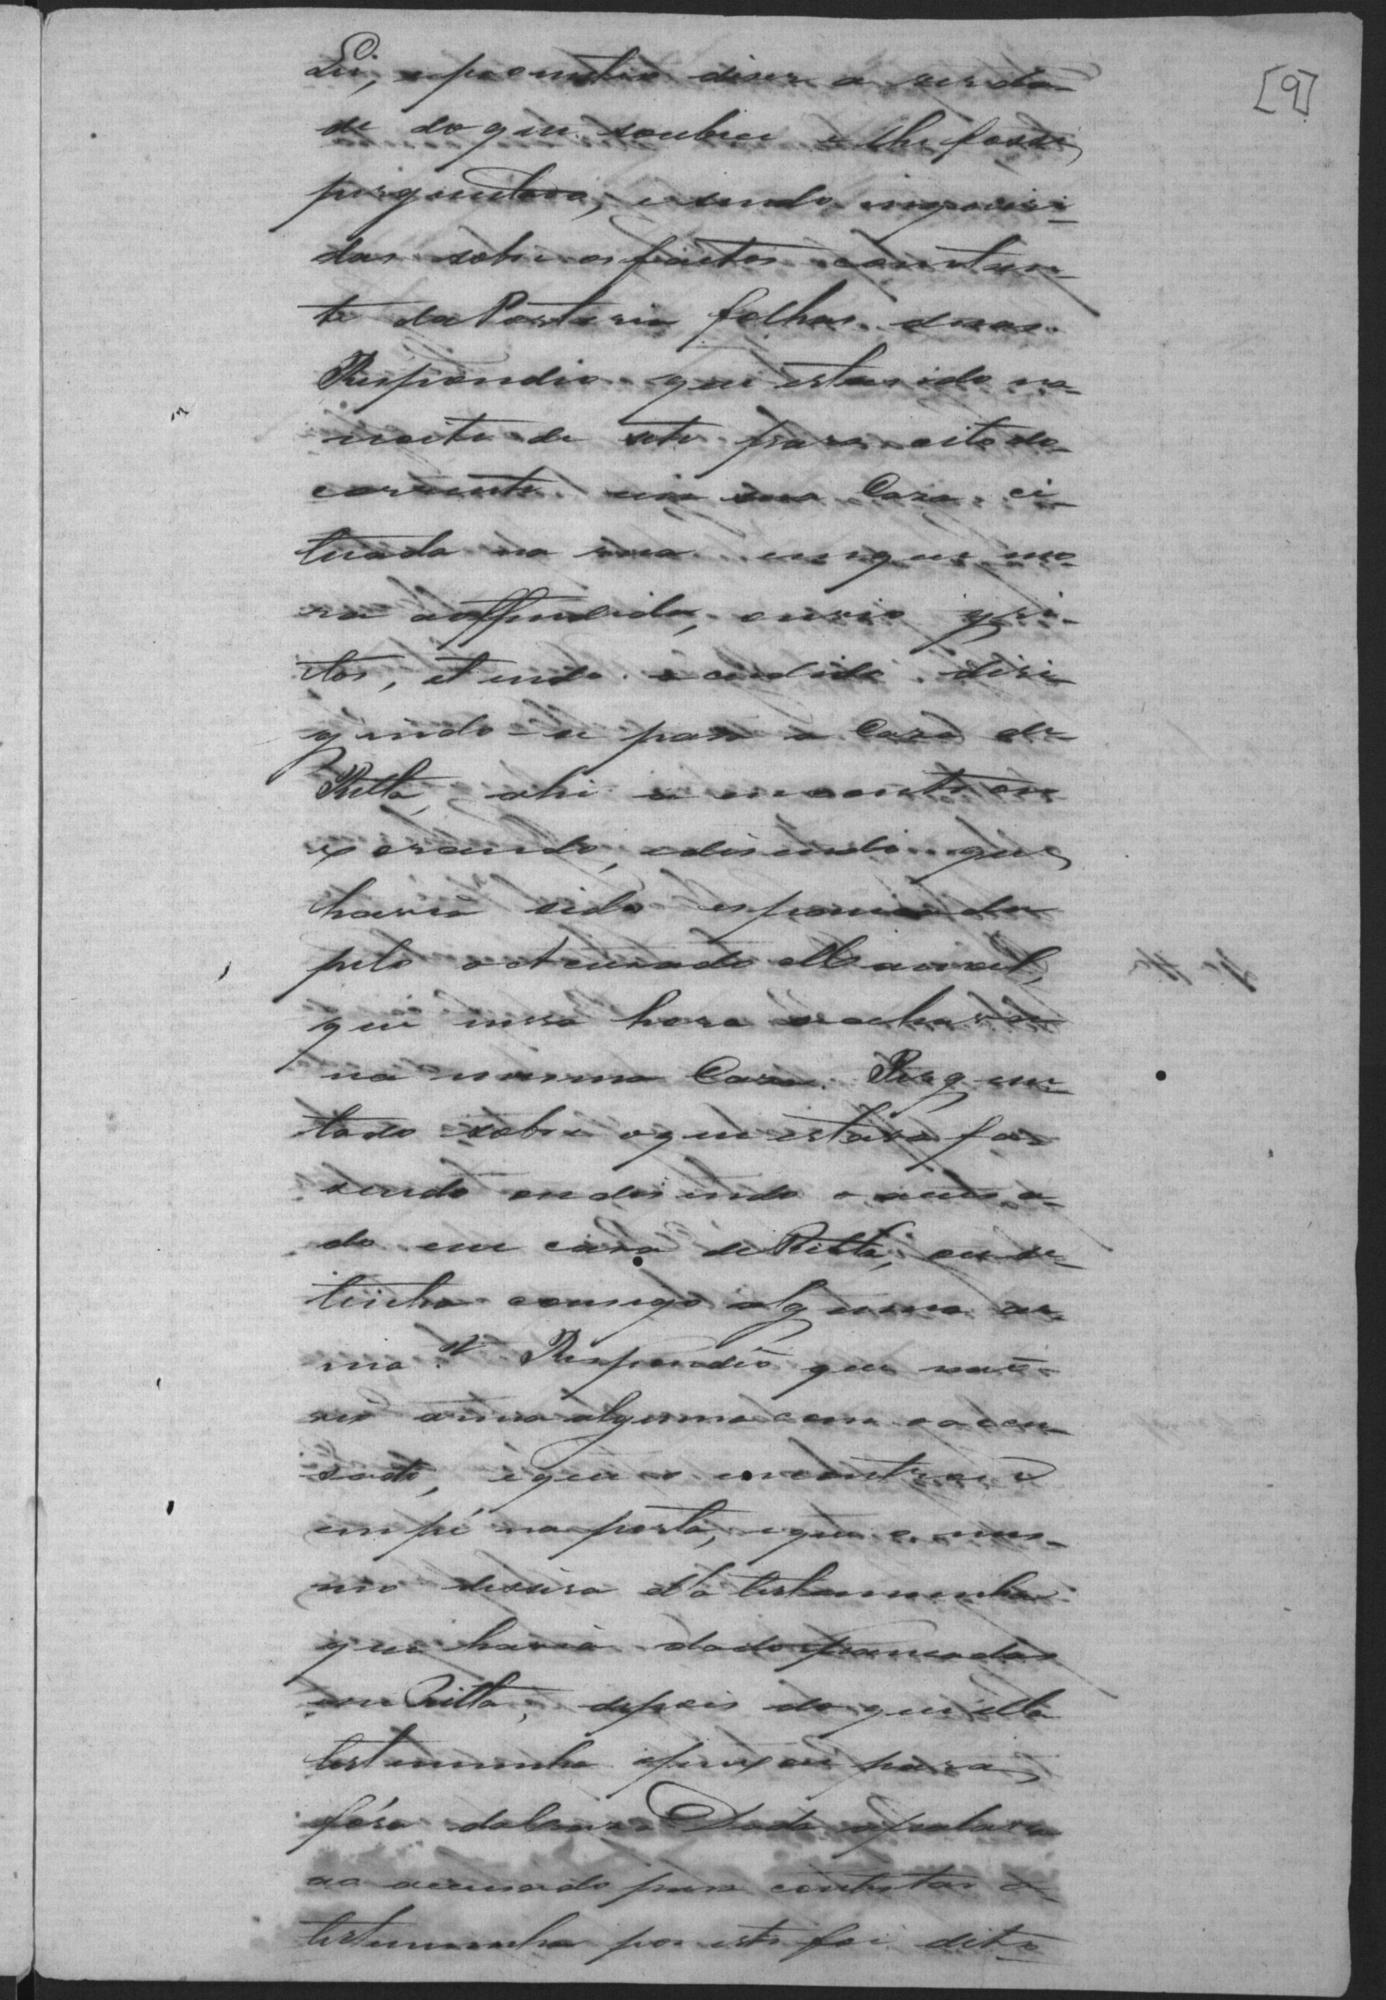 [9]
Lei, e prometteo diser a verda-
de do que soubere e lhe fosse
perguntava, e sendo inqueri-
das sobre os factos constan-
te da Portaria folhas duas.
Respondeo que estando na
noite de sete para oito do
corrente em sua Casa, ci-
tuada na rua em que mo-
ra a offendida, ouvio gri-
tos, e tendo accudido diri-
gindo-se para a Casa de
Ritta, ahi a encontrou
xorando, e disendo que
havia sido espancada
pelo actuado Manoel,
que nessa hora achava-se
na mesma Casa. Pergun-
tado sobre o que estava fa-
sendo ou disendo o accusa-
do em casa de Ritta, ou se
tinha comsigo alguma ar-
ma? Respondeo que não
vio arma alguma com o accu-
sado, e que o encontrou
em pé na porta, e que o mes-
mo dissera a ella testemunha
que havia dado pancadas
em Ritta, depois do que ella
testemunha o puxou para
fóra da Casa. Dada a palavra
ao accusado para contestar a
testemunha por este foi dito